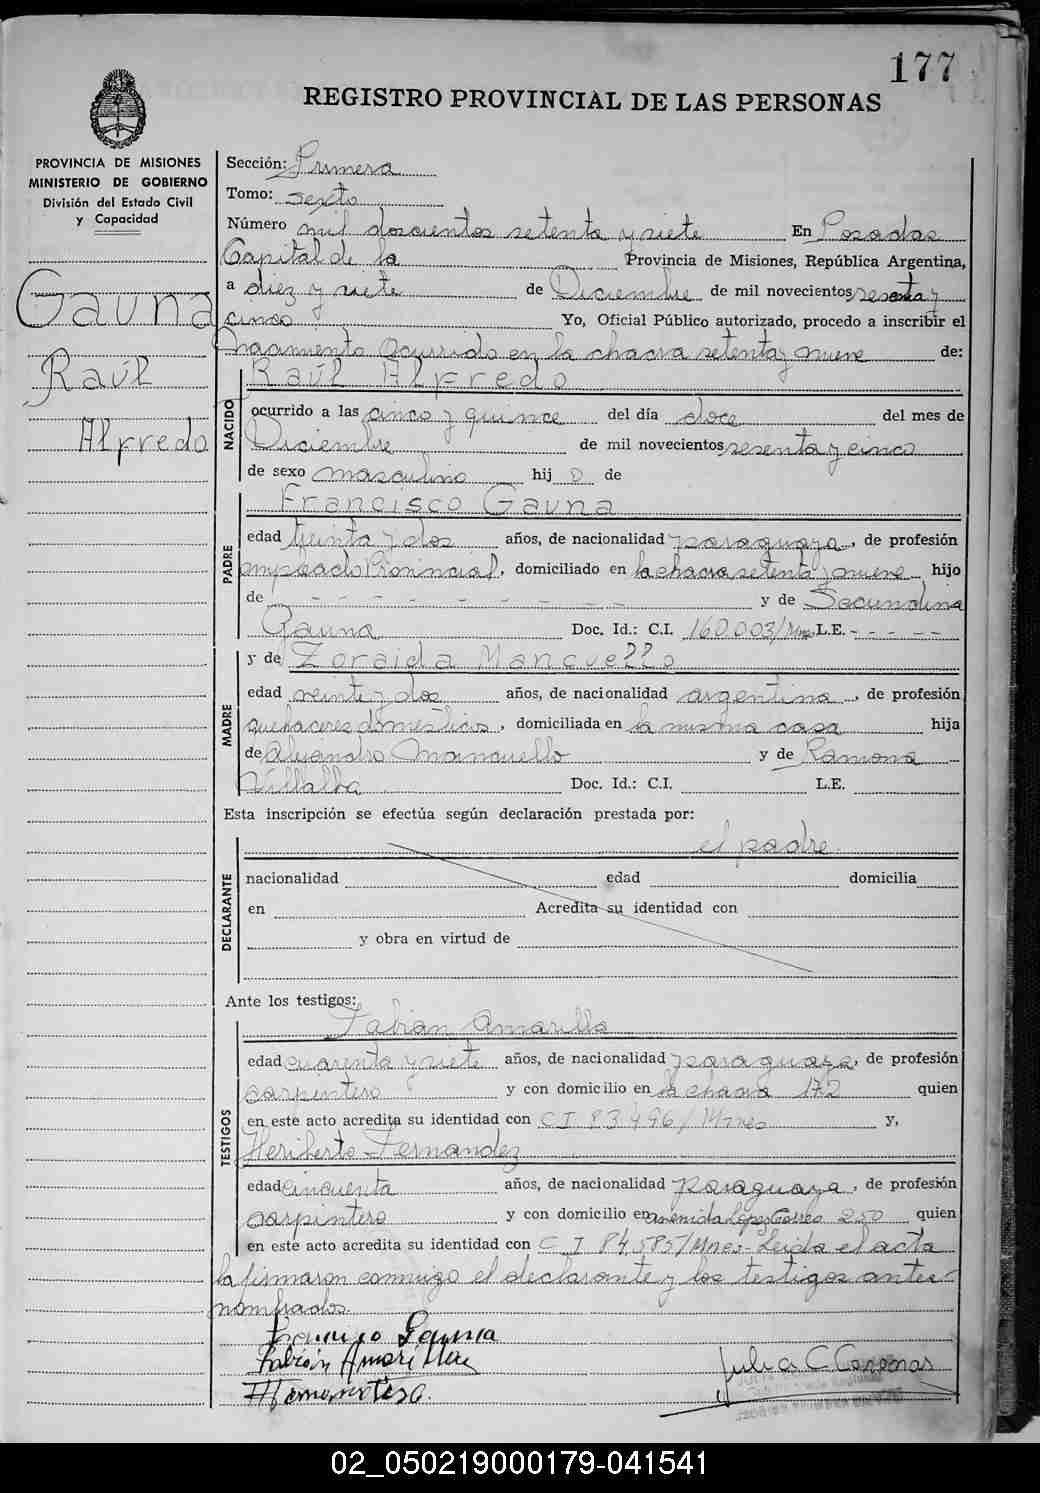 177
REGISTRO PROVINCIAL DE LAS PERSONAS
PROVINCIA DE MISIONES
MINISTERIO DE GOBIERNO
División del Estado Civil
y Capacidad
Gauna
Raúl
Alfredo
Sección: Primera
Tomo: sexto
Número mil doscientos setenta y siete En Posadas
Capital de la Provincia de Misiones, República Argentina,
a diez y siete de Diciembre de mil novecientos sesenta y
cinco Yo, Oficial Público autorizado, procedo a inscribir el
nacimiento ocurrido en la chacra setenta y nueve de:
NACIDO
Raúl Alfredo
ocurrido a las cinco y quince del día doce del mes de
Diciembre de mil novecientos sesenta y cinco
de sexo masculino hij o de
PADRE
Francisco Gauna
edad treinta y dos años, de nacionalidad paraguaya, de profesión
empleado Provincial, domiciliado en la chacra setenta y nueve hijo
de - - - - - - - - - y de Secundina
Gauna Doc. Id.: C.I. 160.003/Mnes L.E. - - - - -
MADRE
y de Zoraida Mancuello
edad veinte y dos años, de nacionalidad argentina, de profesión
quehaceres domésticos, domiciliada en la misma casa hija
de Alejandro Mancuello y de Ramona
Villalba Doc. Id.: C.I. L.E.
Esta inscripción se efectúa según declaración prestada por:
DECLARANTE
el padre.
nacionalidad edad domicilia
en Acredita su identidad con
y obra en virtud de
Ante los testigos:
TESTIGOS
Fabian Amarilla
edad cuarenta y siete años, de nacionalidad paraguaya, de profesión
carpintero y con domicilio en la chacra 172 quien
en este acto acredita su identidad con C I 83.496/Mnes y,
Heriberto Fernandez
edad cincuenta años, de nacionalidad paraguaya, de profesión
carpintero y con domicilio en avenida Lopez Torres 250 quien
en este acto acredita su identidad con C I 84.585/Mnes- Leida el acta
la firmaron conmigo el declarante y los testigos ante-
nombrados.
Francisco Gauna
Fabián Amarilla
Julia C. Cardenas
02_050219000179-041541